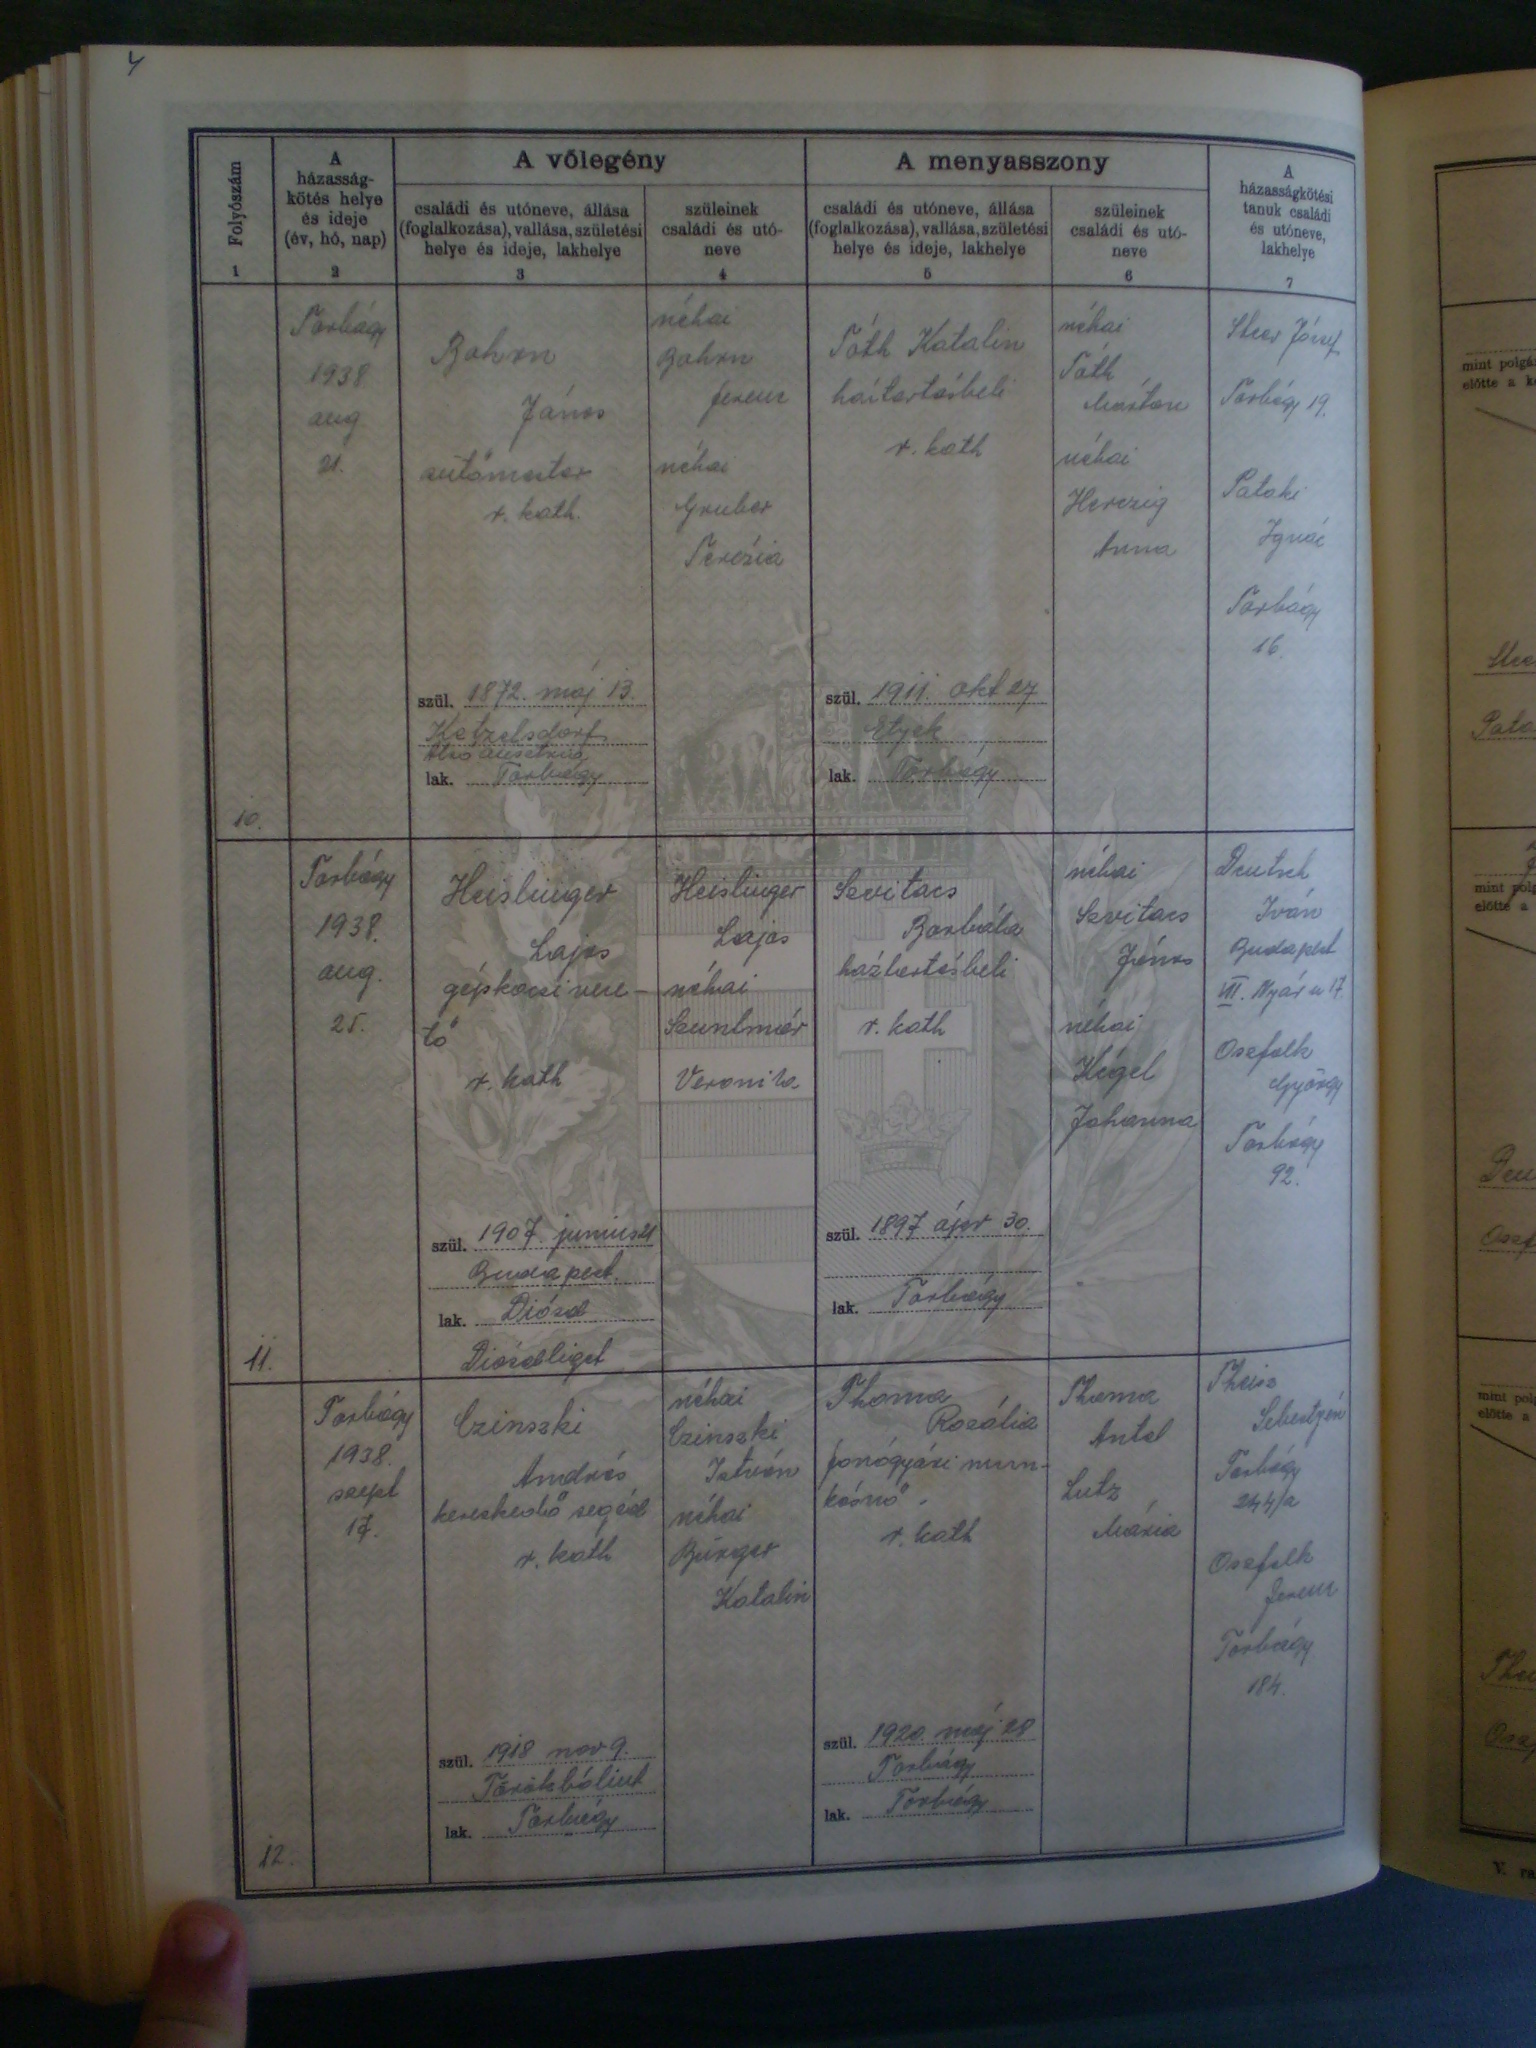 4
Folyószám
1
A
házasság-
kötés helye
és ideje
(év, hó, nap)
2
A vőlegény
családi és utóneve, állása
(foglalkozása), vallása, születési
helye és ideje, lakhelye
3
szüleinek
családi és utó-
neve
4
A menyasszony
családi és utóneve, állása
(foglalkozása), vallása, születési
helye és ideje, lakhelye
5
szüleinek
családi és utó-
neve
6
A
házasságkötési
tanuk családi
és utóneve,
lakhelye
7
10.
Torbágy
1938
aug
21.
Bohrn
János
sütőmester
r. kath.
szül. 1872. máj 13.
Ketzelsdorf
Alsó Ausztria
lak. Torbágy
néhai
Bohrn
Ferenc
néhai
Gruber
Terézia
Tóth Katalin
háztartásbeli
r. kath
szül. 1911. okt 27
Etyek
lak. Torbágy
néhai
Tóth
Márton
néhai
Herczig
Anna
József
Torbágy 19.
Pataki
Ignác
Torbágy
16.
11.
Torbágy
1938.
aug.
25.
Heislinger
Lajos
gépkocsi veze-
tő
r. kath
szül. 1907. junius 21
Budapest.
lak. Diósd
Diósdliget
Heislinger
Lajos
néhai
Veronika
Szvitacs
Borbála
háztartásbeli
r. kath
szül. 1897 ápr 30.
lak. Torbágy
néhai
Szvitacs
János
néhai
Kégel
Johanna
Deutsch
Iván
Budapest
VII. Nyár u 17.
Oszfolk
György
Torbágy
92.
12.
Torbágy
1938.
szept
17.
Czinszki
András
kereskedő segéd
r. kath
szül. 1918 nov 9.
Törökbálint
lak. Torbágy
néhai
Czinszki
István
néhai
Bürger
Katalin
Thoma
Rozália
fonógyári mun-
kásnő.
r. kath
szül. 1920 máj 28
Torbágy
lak. Torbágy
Thoma
Antal
Lutz
Mária
Theisz
Sebestyén
Torbágy
244/a
Oszfolk
Ferenc
Torbágy
184.
mint polgá
előtte a k
mint polg
előtte a
mint polg
előtte a
V. ra